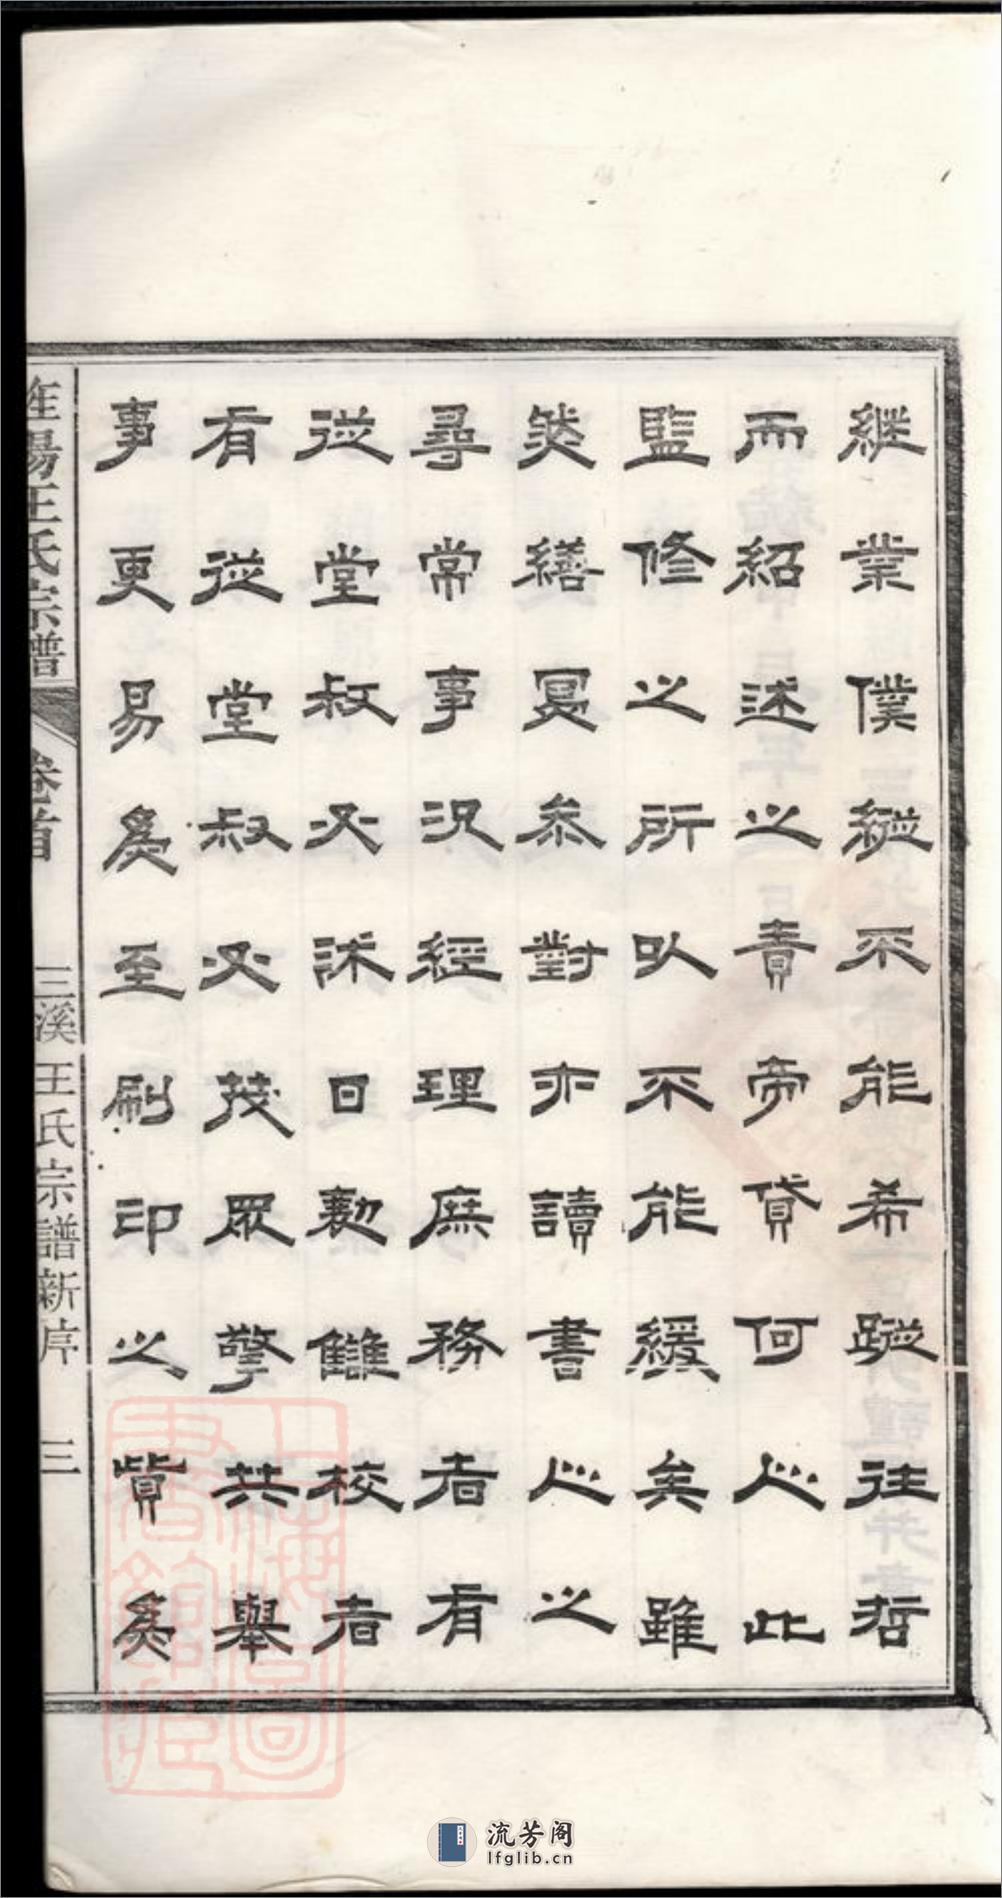 繼業僕縱不能希蹤往哲
而紹述之責旁貸何人此
監修之所以不能緩矣雖
然繕冩參對亦讀書人之
尋常事況經理庶務者有
從堂叔必訹日勷讎校者
有從堂叔必茂眾擎共舉
事更易為至刷印之貲為
旌陽王氏宗譜 卷首 三溪王氏宗譜新序 三
上海圖書館藏
流芳阁
lfglib.cn